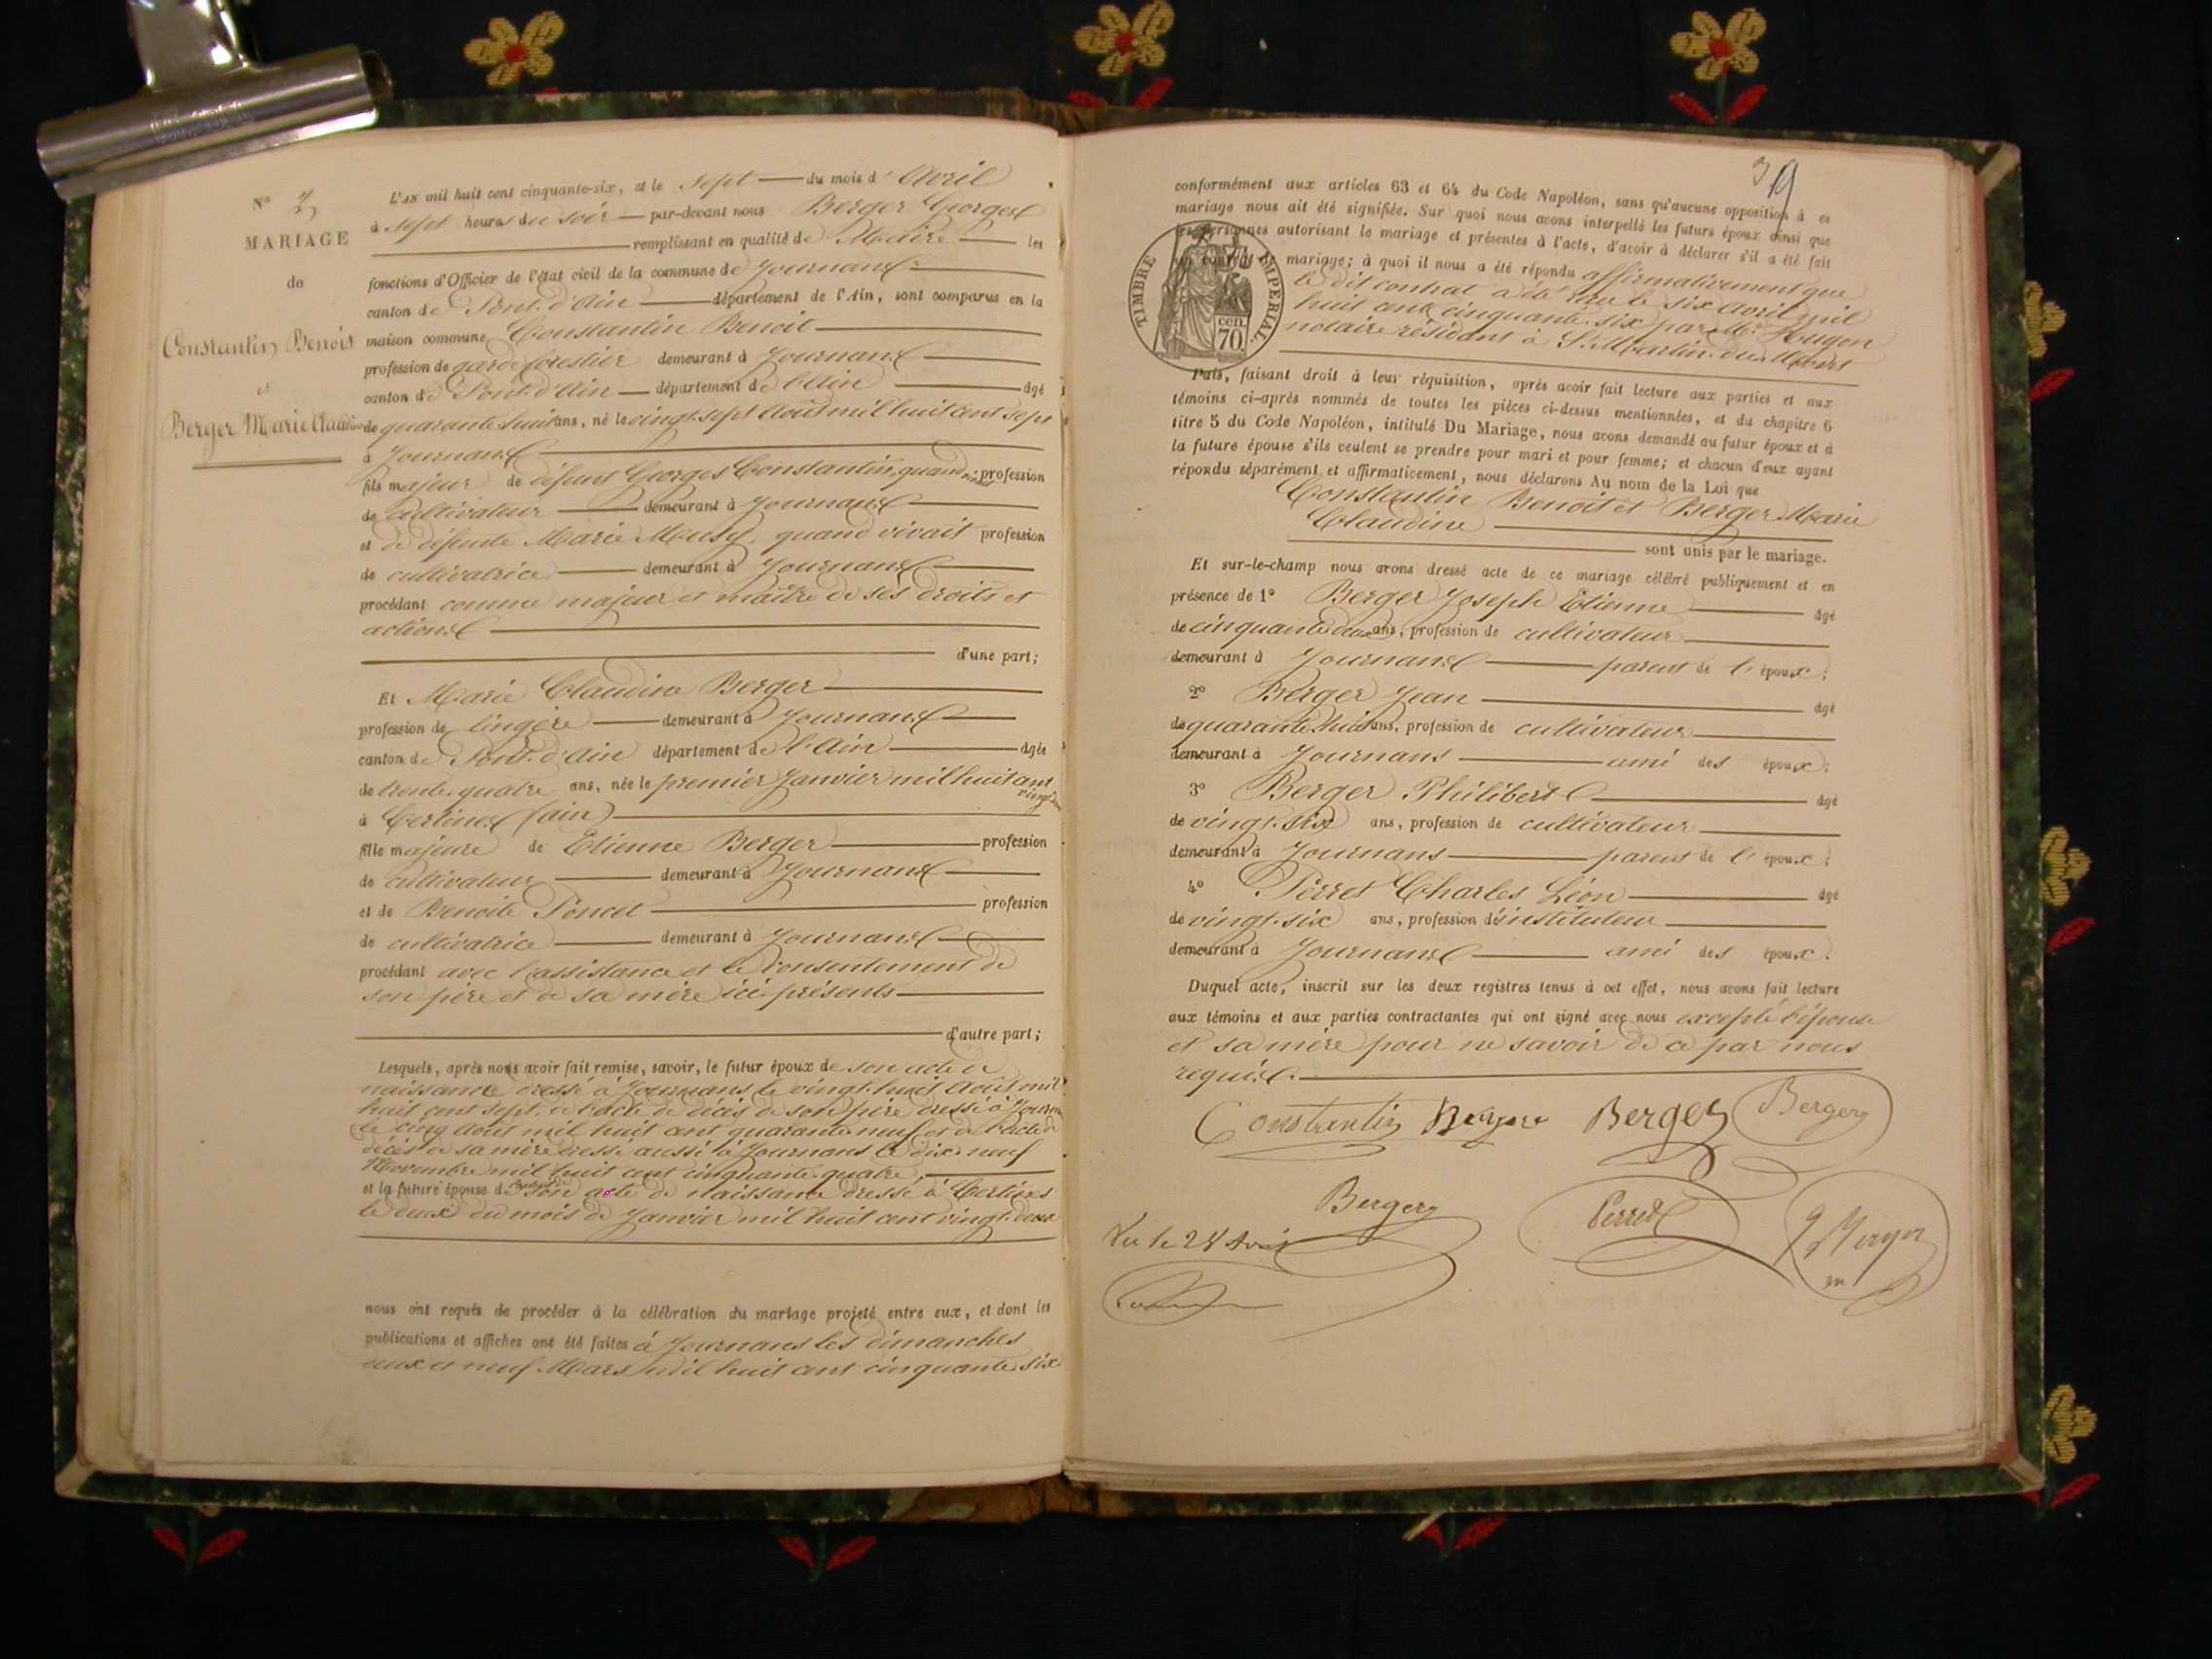 N° 2
MARIAGE
de
Constantin Benoit
et
Berger Marie Claudine
L'AN mil huit cent cinquante-six, et le sept du mois d'Avril
à sept heures du soir par-devant nous Berger Georges
remplissant en qualité de Maire les
fonctions d'Officier de l'état civil de la commune de Journans
canton de Pont-d'Ain département de l'Ain, sont comparus en la
maison commune Constantin Benoit
profession de garde forestier demeurant à Journans
canton de Pont-d'Ain département de l'Ain âgé
de quarante huit ans, né le vingt-sept Août mil huit cent sept
à Journans
fils majeur de défunt Georges Constantin, quand vivait profession
de cultivateur demeurant à Journans
et de défunte Marie Musy, quand vivait profession
de cultivatrice demeurant à Journans
procédant comme majeur et maître de ses droits et
actions
d'une part;
Et Marie Claudine Berger
profession de lingère demeurant à Journans
canton de Pont-d'Ain département de l'Ain âgée
de trente-quatre ans, née le premier Janvier mil huit cent
vingt deux
à Certines (ain)
fille majeure de Etienne Berger profession
de cultivateur demeurant à Journans
et de Benoite Poncet profession
de cultivatrice demeurant à Journans
procédant avec l'assistance et le consentement de
son père et de sa mère ici présents
d'autre part;
Lesquels, après nous avoir fait remise, savoir, le futur époux de son acte de
naissance dressé à Journans le vingt-huit Août mil
huit cent sept, de l'acte de décès de son père dressé à Journans
le cinq Août mil huit cent quarante neuf et de l'acte de
décès de sa mère dressé aussi à Journans le dix-neuf
Novembre mil huit cent cinquante-quatre,
et la future épouse de son acte de naissance dressé à Certines
le deux du mois de Janvier mil huit cent vingt-deux
nous ont requis de procéder à la célébration du mariage projeté entre eux, et dont les
publications et affiches ont été faites à Journans les dimanches
deux et neuf Mars mil huit cent cinquante-six
39
conformément aux articles 63 et 64 du Code Napoléon, sans qu'aucune opposition à ce
mariage nous ait été signifiée. Sur quoi nous avons interpellé les futurs époux ainsi que
les personnes autorisant le mariage et présentes à l'acte, d'avoir à déclarer s'il a été fait
un contrat de mariage; à quoi il nous a été répondu affirmativement que
le dit contrat a été reçu le six avril mil
huit cent cinquante-six par Me Hugon
notaire résidant à St Martin-du-Mont
TIMBRE IMPERIAL
cen. 70.
Puis, faisant droit à leur réquisition, après avoir fait lecture aux parties et aux
témoins ci-après nommés de toutes les pièces ci-dessus mentionnées, et du chapitre 6
titre 5 du Code Napoléon, intitulé Du Mariage, nous avons demandé au futur époux et à
la future épouse s'ils veulent se prendre pour mari et pour femme; et chacun d'eux ayant
répondu séparément et affirmativement, nous déclarons Au nom de la Loi que
Constantin Benoit et Berger Marie
Claudine
sont unis par le mariage.
Et sur-le-champ nous avons dressé acte de ce mariage célébré publiquement et en
présence de 1° Berger Joseph Etienne âgé
de cinquante deux ans, profession de cultivateur
demeurant à Journans parent de l'époux;
2° Berger Jean âgé
de quarante huit ans, profession de cultivateur
demeurant à Journans ami des époux;
3° Berger Philibert âgé
de vingt-six ans, profession de cultivateur
demeurant à Journans parent de l'époux;
4° Perret Charles Léon âgé
de vingt-six ans, profession d'instituteur
demeurant à Journans ami des époux.
Duquel acte, inscrit sur les deux registres tenus à cet effet, nous avons fait lecture
aux témoins et aux parties contractantes qui ont signé avec nous excepté l'épouse
et sa mère pour ne savoir de ce par nous
requis.
Constantin Berger Berger Berger
Berger Perret
Vu le 24 Avril